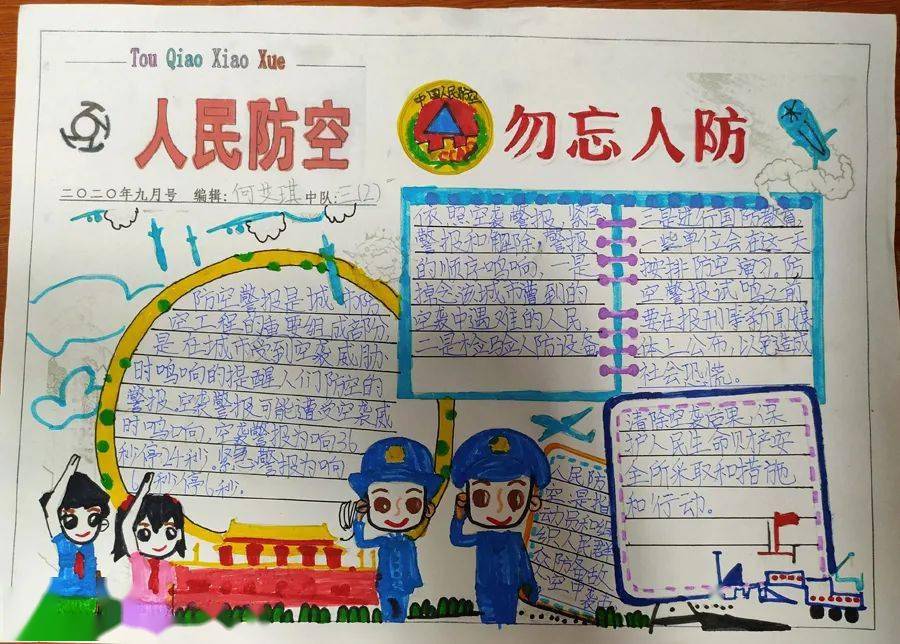 Tou Qiao Xiao Xue
人民防空
中国人民防空
勿忘人防
二〇二〇年九月号 编辑:何艾琪 中队:三(2)
防空警报是城市防
空工程的重要组成部分,
是在城市受到空袭威胁
时鸣响的提醒人们防空的
警报。空袭警报可能遭受空袭威
时鸣响,空袭警报为响36
秒停24秒。紧急警报为响
秒停6秒。
依照空袭警报,紧急
警报和解除,警报
的顺序鸣响,一是
悼念该城市曹到的
空袭中遇难的人民,
二是检验人防设备
三是进行国防教育
一些单位会在这一天
按排防空演习。防
空警报试鸣之前
要在报刊等新闻媒
体上公布,以免造成
社会恐慌。
人民防
空是指
动员和
人民群
清除空袭后果,采
护人民生命财产安
全所采取和措施
和行动。